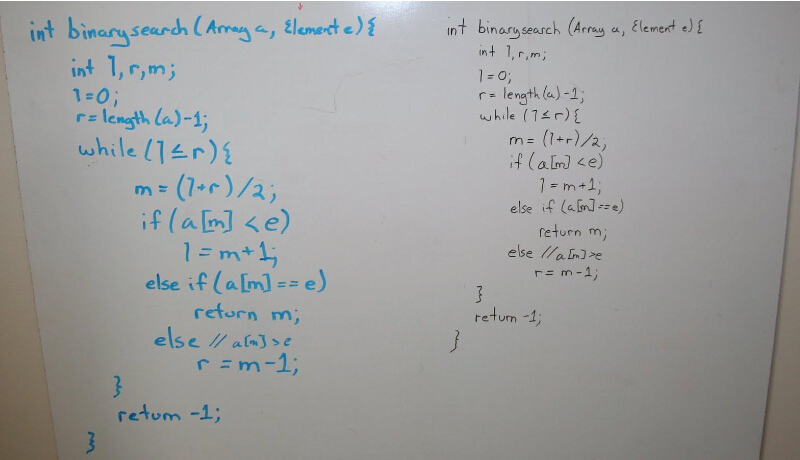 int binarysearch (Array a, Element e){
int l,r,m;
l=0;
r=length(a)-1;
while (l≤r){
m=(l+r)/2;
if (a[m] <e)
l = m+1;
else if (a[m]==e)
return m;
else // a[m]>e
r = m-1;
}
return -1;
}
int binarysearch (Array a, Element e){
int l,r,m;
l=0;
r= length(a)-1;
while (l≤r){
m= (l+r)/2;
if (a[m] <e)
l = m+1;
else if (a[m]==e)
return m;
else //a[m]>e
r= m-1;
}
return -1;
}